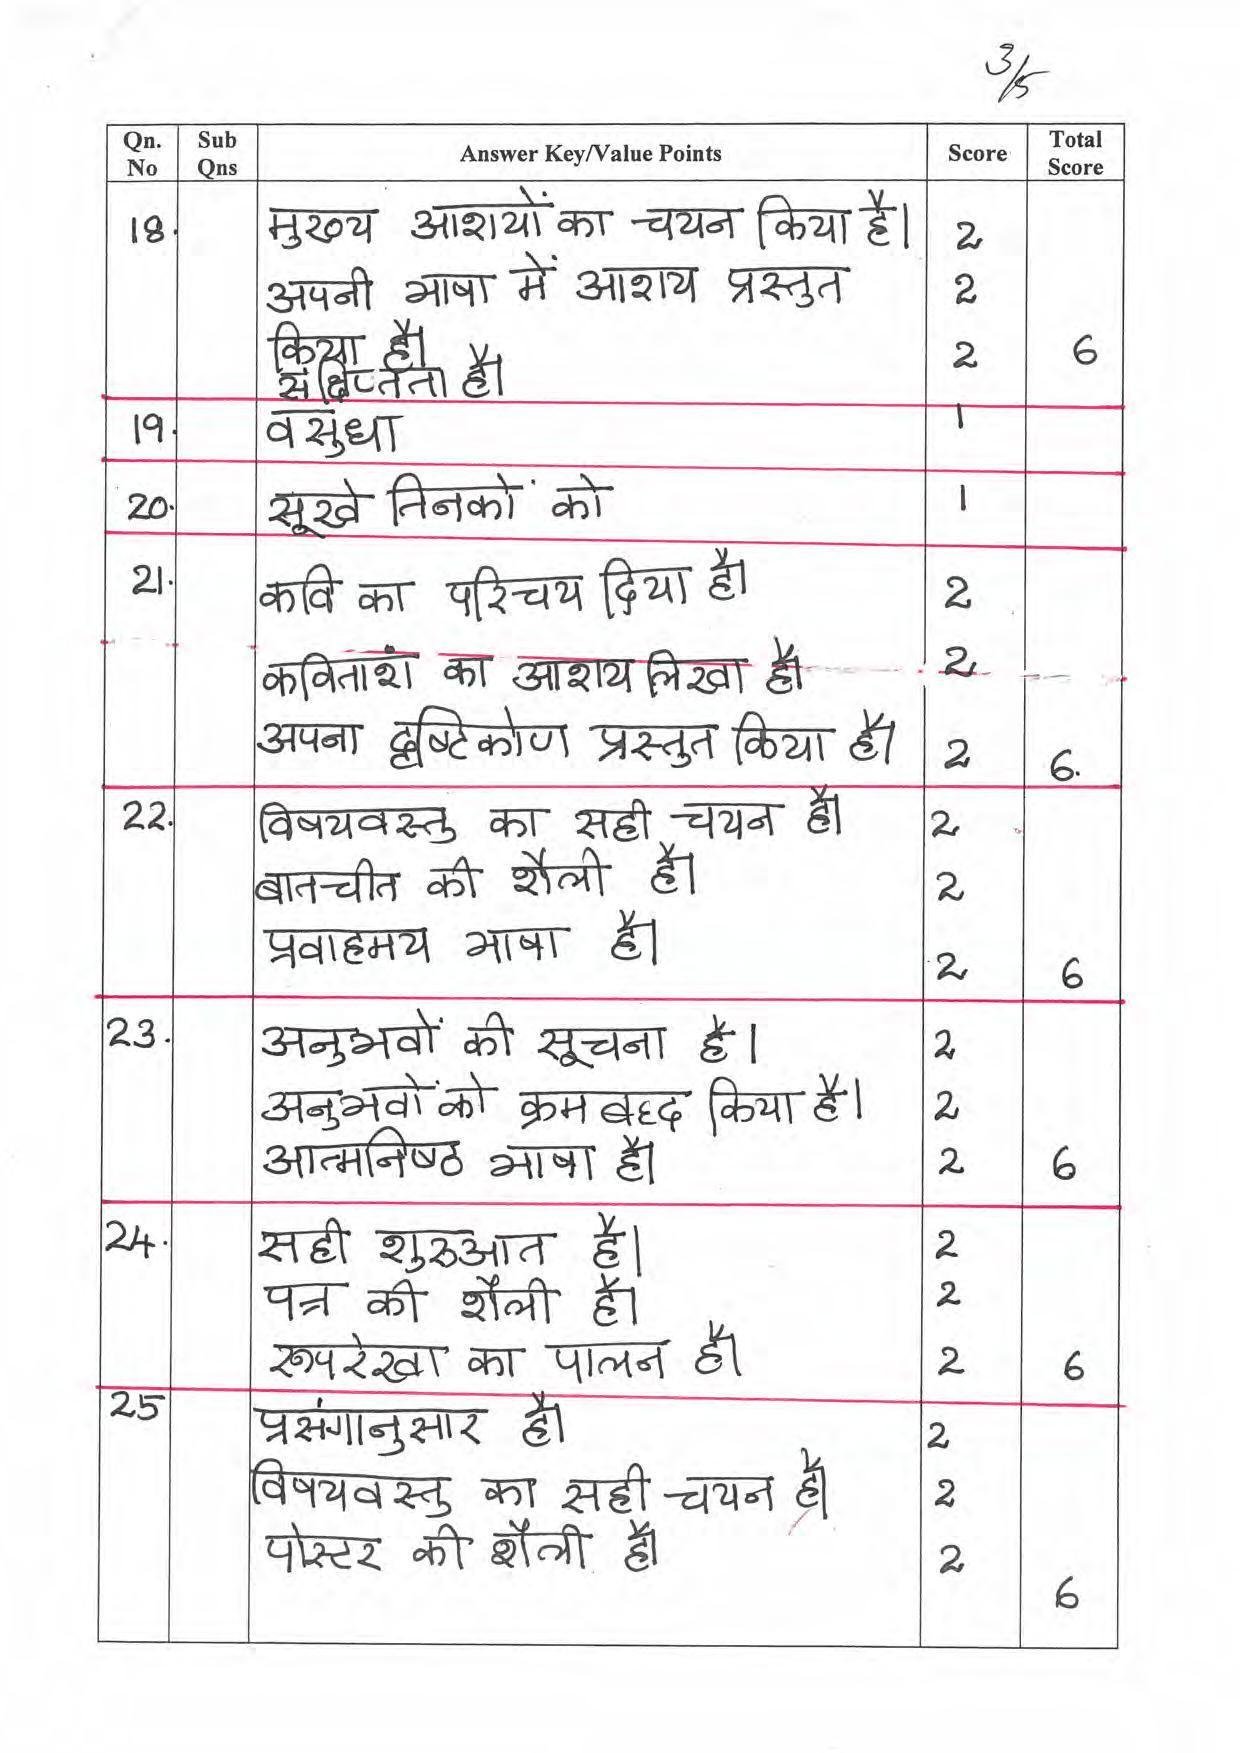 3/5
Qn. No | Sub Qns | Answer Key/Value Points | Score | Total Score
18. मुख्य आशयों का चयन किया है। 2
अपनी भाषा में आशय प्रस्तुत 2
किया है। 2 6
संक्षिप्तता है।
19. वसुधा 1
20. सूखे तिनकों को 1
21. कवि का परिचय दिया है। 2
कवितांश का आशय लिखा है। 2
अपना दृष्टिकोण प्रस्तुत किया है। 2 6.
22. विषयवस्तु का सही चयन है। 2
बातचीत की शैली है। 2
प्रवाहमय भाषा है। 2 6
23. अनुभवों की सूचना है। 2
अनुभवों को क्रमबद्द किया है। 2
आत्मनिष्ठ भाषा है। 2 6
24. सही शुरुआत है। 2
पत्र की शैली है। 2
रूपरेखा का पालन है। 2 6
25 प्रसंगानुसार है। 2
विषयवस्तु का सही चयन है। 2
पोस्टर की शैली है। 2
6